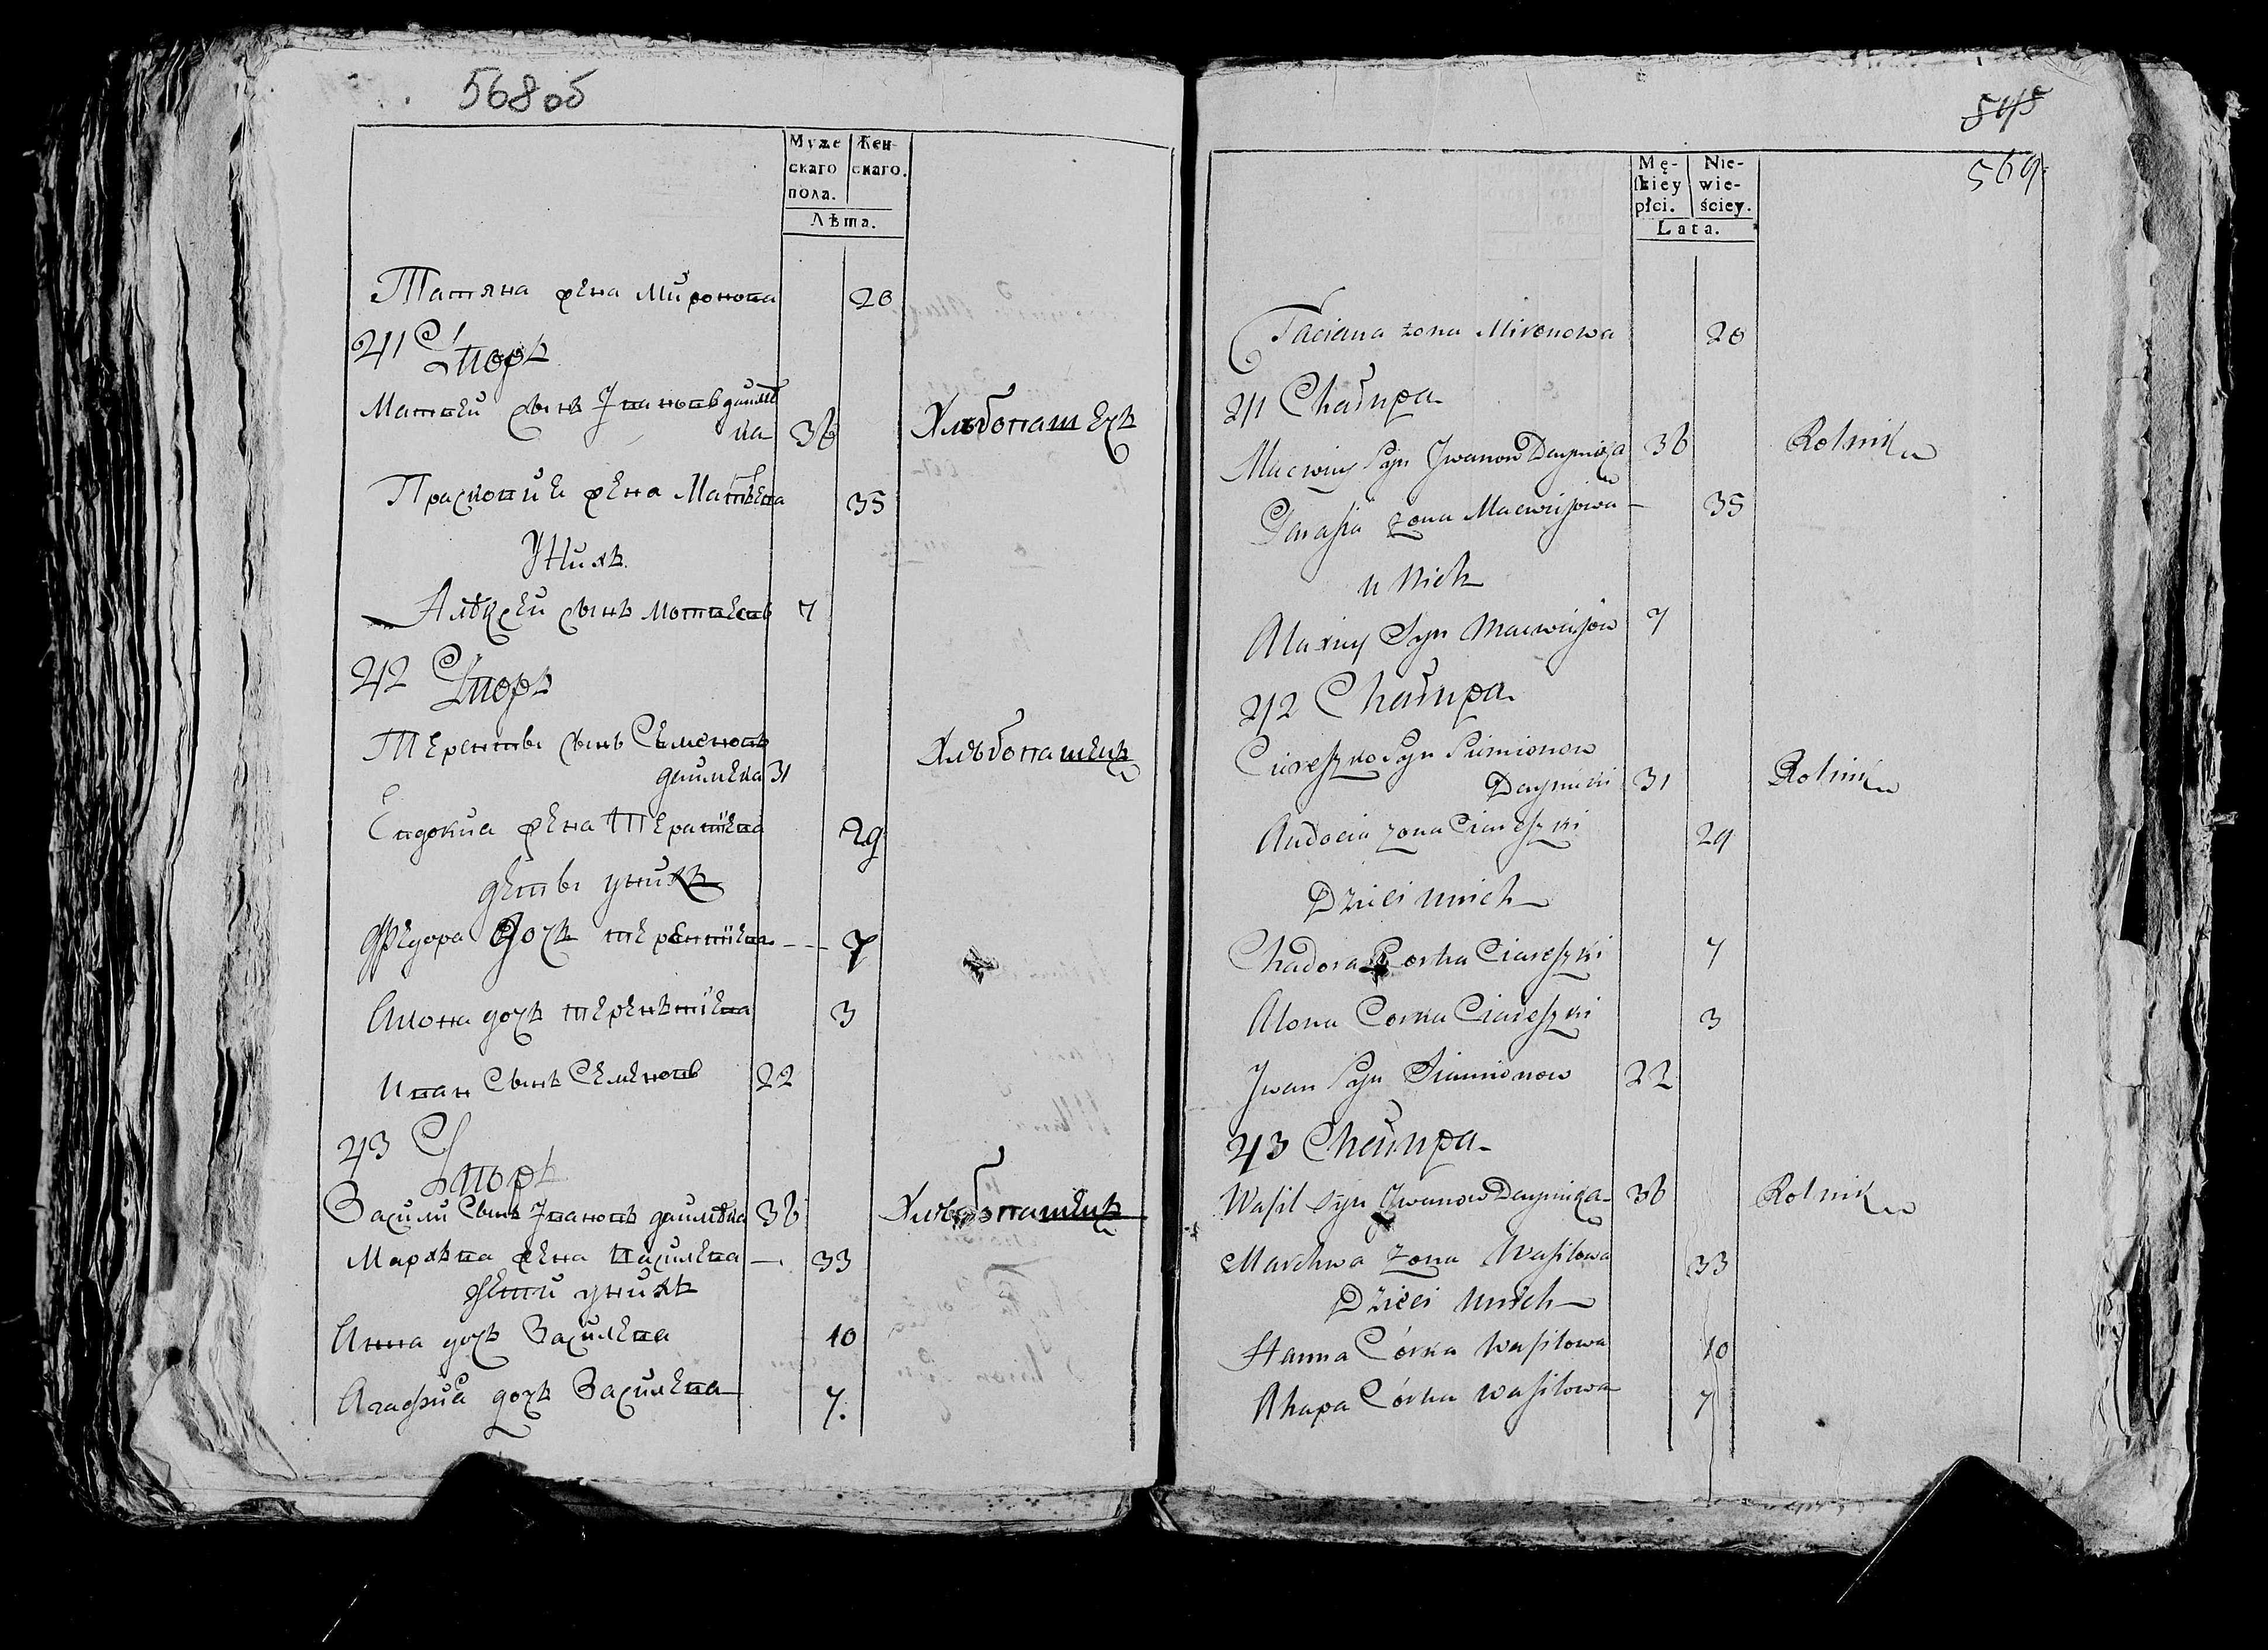 568 об
Муже
скаго
пола.
Жен-
скаго.
Лѣта.
Татяна жена Миронова 20
41 Двор
Матвеи сынъ Ивановъ дайне
ка 36 Хлѣбопашецъ
Прасковия жена Матвѣева 35
У Нихъ
Алѣксеи сынъ Мотвеевъ 7
42 Двор
Терентьи сынъ Семеновъ
31 Хлѣбопашецъ
Евдокиа жена Терентіева 29
дети у нихъ
Федора дочъ терентіева 7
Алона дочъ теренътіева 3
Иван Сынъ Семеновъ 22
43
Двор
Василии Сынъ Ивановъ 36 Хлѣбопашецъ
Мархва жена василева 33
дети у нихъ
Анна дочъ Василева 10
Агафиа дочъ Василева 7.
545
569
Mę-
skiey
płci.
Nie-
wie-
ściey.
Lata.
Taciana żona Mironowa 20
41 Chałupa
Macwiey Syn Jwanow Dayneka 36 Rolnik
Parasia żona Macwiejowa 35
u Nich
Alaxiey Syn Macwiejow 7
42 Chałupa
Ciareszko Syn Siemionow
31 Rolnik
Audocia żona Ciareszki 29
Dzieci u nich
Chadora Corka Ciareszki 7
Alona Corka Ciareszki 3
Jwan Syn Siemionow 22
43 Chałupa
Wasil Syn Jwanow Dayneka 36 Rolnik
Marchwa żona Wasilowa 33
Dzieci u nich
Hanna Córka Wasilowa 10
Ahapa Córka Wasilowa 7